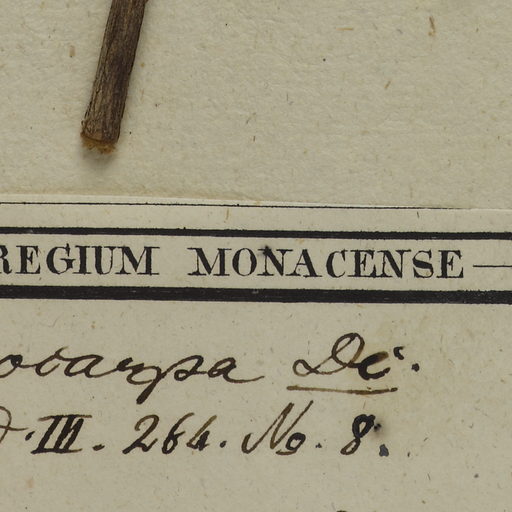 REGIUM MONACENSE
ocarpa DC.
III. 264. No. 8.